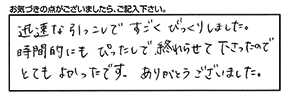 お気づきの点がございましたら、ご記入下さい。
迅速な引っこしで すごく びっくりしました。
時間的にも ぴったしで 終わらせて 下さったので
とても よかったです。 ありがとうございました。